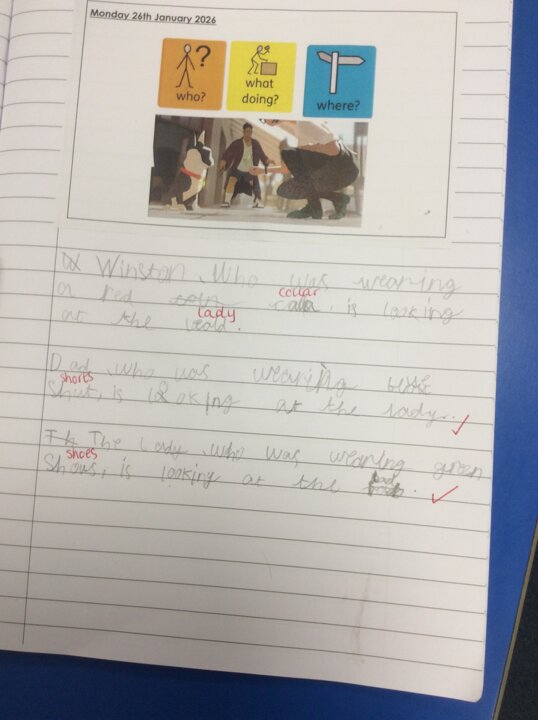 Monday 26th January 2026
who?
what
doing?
where?
Winston, who was wearing
collar
a red is looking
lady
at the .
Dad, who was wearing
shorts
Shut, is looking at the lady.
The Lady, who was wearing green
shoes
Shous, is looking at the dad.